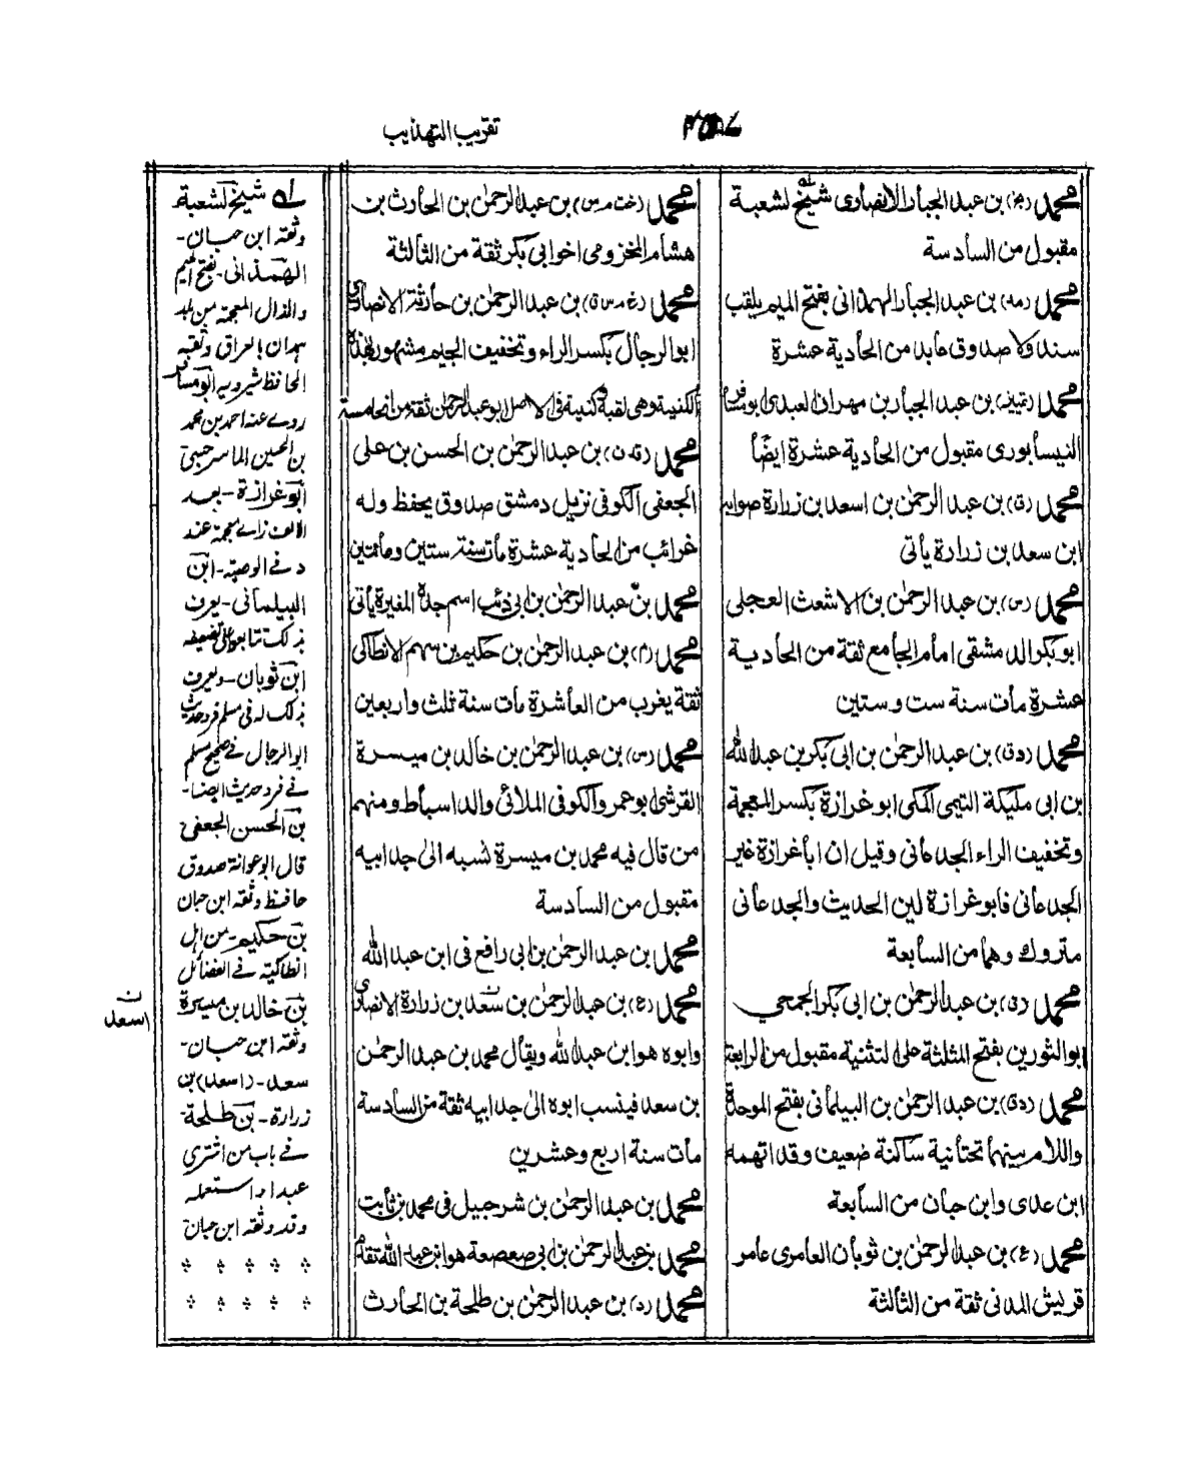 تقریب التہذیب
محمد (بخ) بن عبد الجبار الانصاری شیخ لشعبة
مقبول من السادسة
محمد (مد) بن عبد الجبار الهمدانی بفتح المیم یلقب
سندولا صدوق عابد من الحادیة عشرة
محمد (تمییز) بن عبد الجبار بن مهران العبدی ابو مسافر
النیسابوری مقبول من الحادیة عشرة ایضا
محمد (ق) بن عبد الرحمٰن بن اسعد بن زرارة صوابه
ابن سعد بن زرارة یأتی
محمد (س) بن عبد الرحمٰن بن الاشعث العجلی
ابو بکر الدمشقی امام الجامع ثقة من الحادیة
عشرة مات سنة ست وستین
محمد (د ق) بن عبد الرحمٰن بن ابی بکر بن عبد الله
بن ابی ملیکة التیمی المکی ابو غرازة بکسر المعجمة
وتخفیف الراء الجدعانی وقیل ان ابا غرازة غیر
الجدعانی فابو غرازة لین الحدیث والجدعانی
متروك وهما من السابعة
محمد بن عبد الرحمٰن بن ابی بکر الجمحی
ابو الثورین بفتح المثلثة علی التثنیة مقبول من الرابعة
محمد (د ق) بن عبد الرحمٰن بن البیلمانی بفتح الموحدة
واللام بینهما تحتانیة ساکنة ضعیف وقد اتهمه
ابن عدی وابن حبان من السابعة
محمد (ع) بن عبد الرحمٰن بن ثوبان العامری عامر
قریش المدنی ثقة من الثالثة
محمد (خت م س) بن عبد الرحمٰن بن الحارث بن
هشام المخزومی اخو ابی بکر ثقة من الثالثة
محمد (خ م س ق) بن عبد الرحمٰن بن حارثة الانصاری
ابو الرجال بکسر الراء وتخفیف الجیم مشهور بهذه
الکنیة وهی لقبه وکنیته فی الاصل ابو عبد الرحمٰن ثقة من الخامسة
محمد بن عبد الرحمٰن بن الحسن بن علی
الجعفی الکوفی نزیل دمشق صدوق یحفظ وله
غرائب من الحادیة عشرة مات سنة ستین ومائتین
محمد بن عبد الرحمٰن بن ابی ذئب اسم جده المغیرة یأتی
محمد (م) بن عبد الرحمٰن بن حکیم بن سهم الانطاکی
ثقة یغرب من العاشرة مات سنة ثلث واربعین
محمد (س) بن عبد الرحمٰن بن خالد بن میسرة
القرشی ابو عمرو الکوفی الملائی والد اسباط ومنهم
من قال فیه محمد بن میسرة نسبه الی جد ابیه
مقبول من السادسة
محمد بن عبد الرحمٰن بن ابی رافع فی ابن عبد الله
محمد (ع) بن عبد الرحمٰن بن سعد بن زرارة الانصاری
وابوه هو ابن عبد الله ویقال محمد بن عبد الرحمٰن
بن سعد فینسب ابوه الی جد ابیه ثقة من السادسة
مات سنة اربع وعشرین
محمد بن عبد الرحمٰن بن شرحبیل فی محمد بن ثابت
محمد بن عبد الرحمٰن بن ابی صعصعة هو ابن عبد الله تقدم
محمد (د) بن عبد الرحمٰن بن طلحة بن الحارث
لہ شیخ لشعبة
وثقه ابن حبان-
الهمذانی- بفتح المیم
والذال المعجمة من بلد
همدان بالعراق وتعقبه
الحافظ شیرویه ابو مسافر
روے عنه احمد بن محمد
بن الحسین الماسرجسی
ابو غرازة- بعد
الالف زاے معجمة عند
د فے الوصیة- ابن
البیلمانی- یعرف
بذلک تابعوا علی تضعیفه
ابن ثوبان- ویعرف
بذلک له فی مسلم فرد حدیث
ابو الرجال فے صحیح مسلم
فے فرد حدیث ایضا-
بن الحسن الجعفی
قال ابو عوانة صدوق
حافظ وثقه ابن حبان
بن حکیم- من اهل
انطاکیة فے الفضائل
بن خالد بن میسرة
وثقه ابن حبان-
سعد- (اسعد) بن
زرارة- بن طلحة-
فے باب من اشتری
عبدا واستعمله
وقد وثقه ابن حبان
ن
اسعد